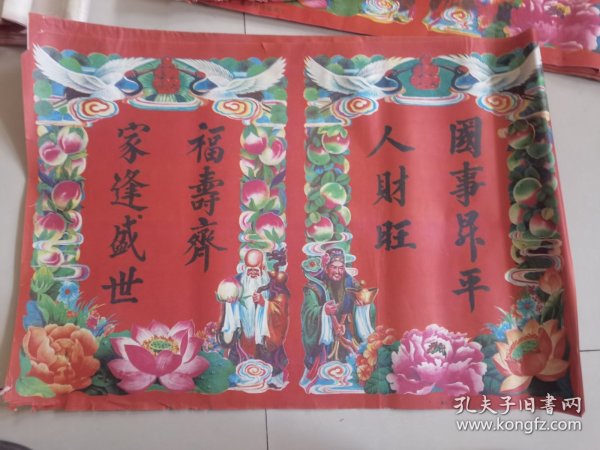 國事昇平
人財旺
福壽齊
家逢盛世
孔夫子旧書网
www.kongfz.com